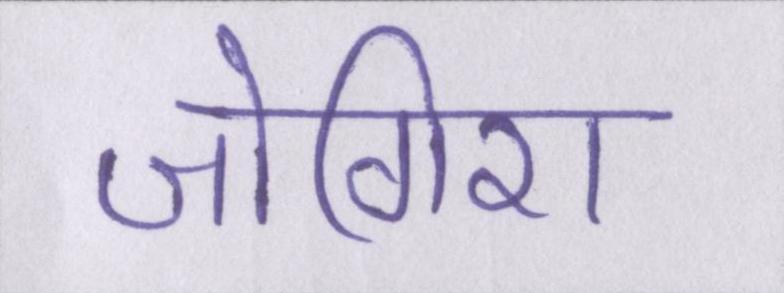 जोगिरा